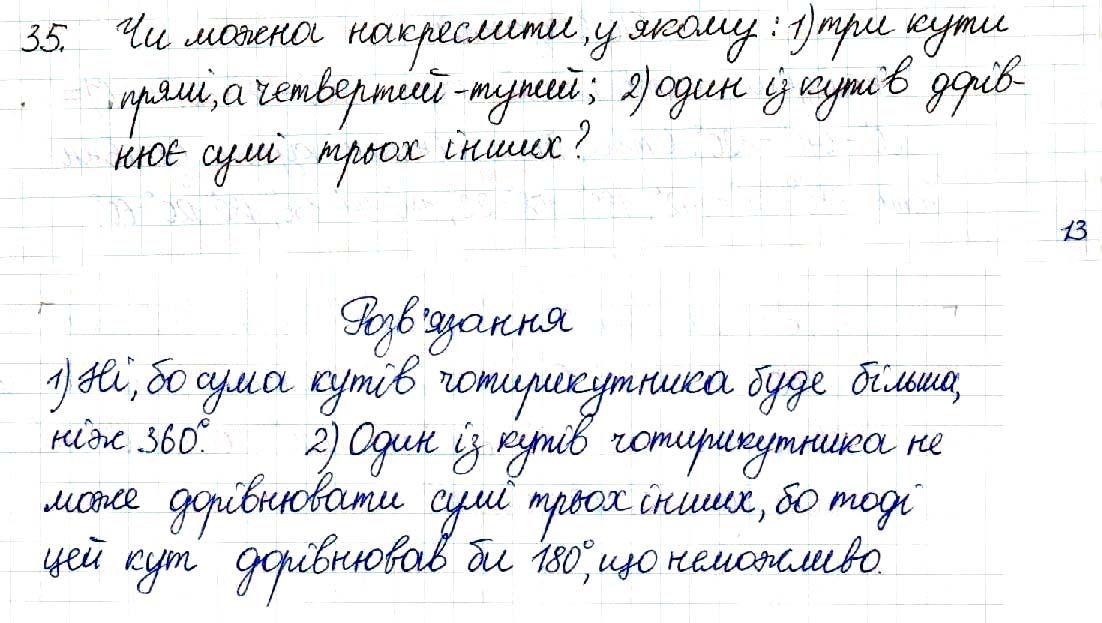 35. Чи можна накреслити, у якому: 1) три кути
прямі, а четвертий - тупий; 2) один із кутів дорів-
нює сумі трьох інших?
13
Розв'язання
1) Ні, бо сума кутів чотирикутника буде більша,
ніж 360°. 2) Один із кутів чотирикутника не
може дорівнювати сумі трьох інших, бо тоді
цей кут дорівнював би 180°, що неможливо.